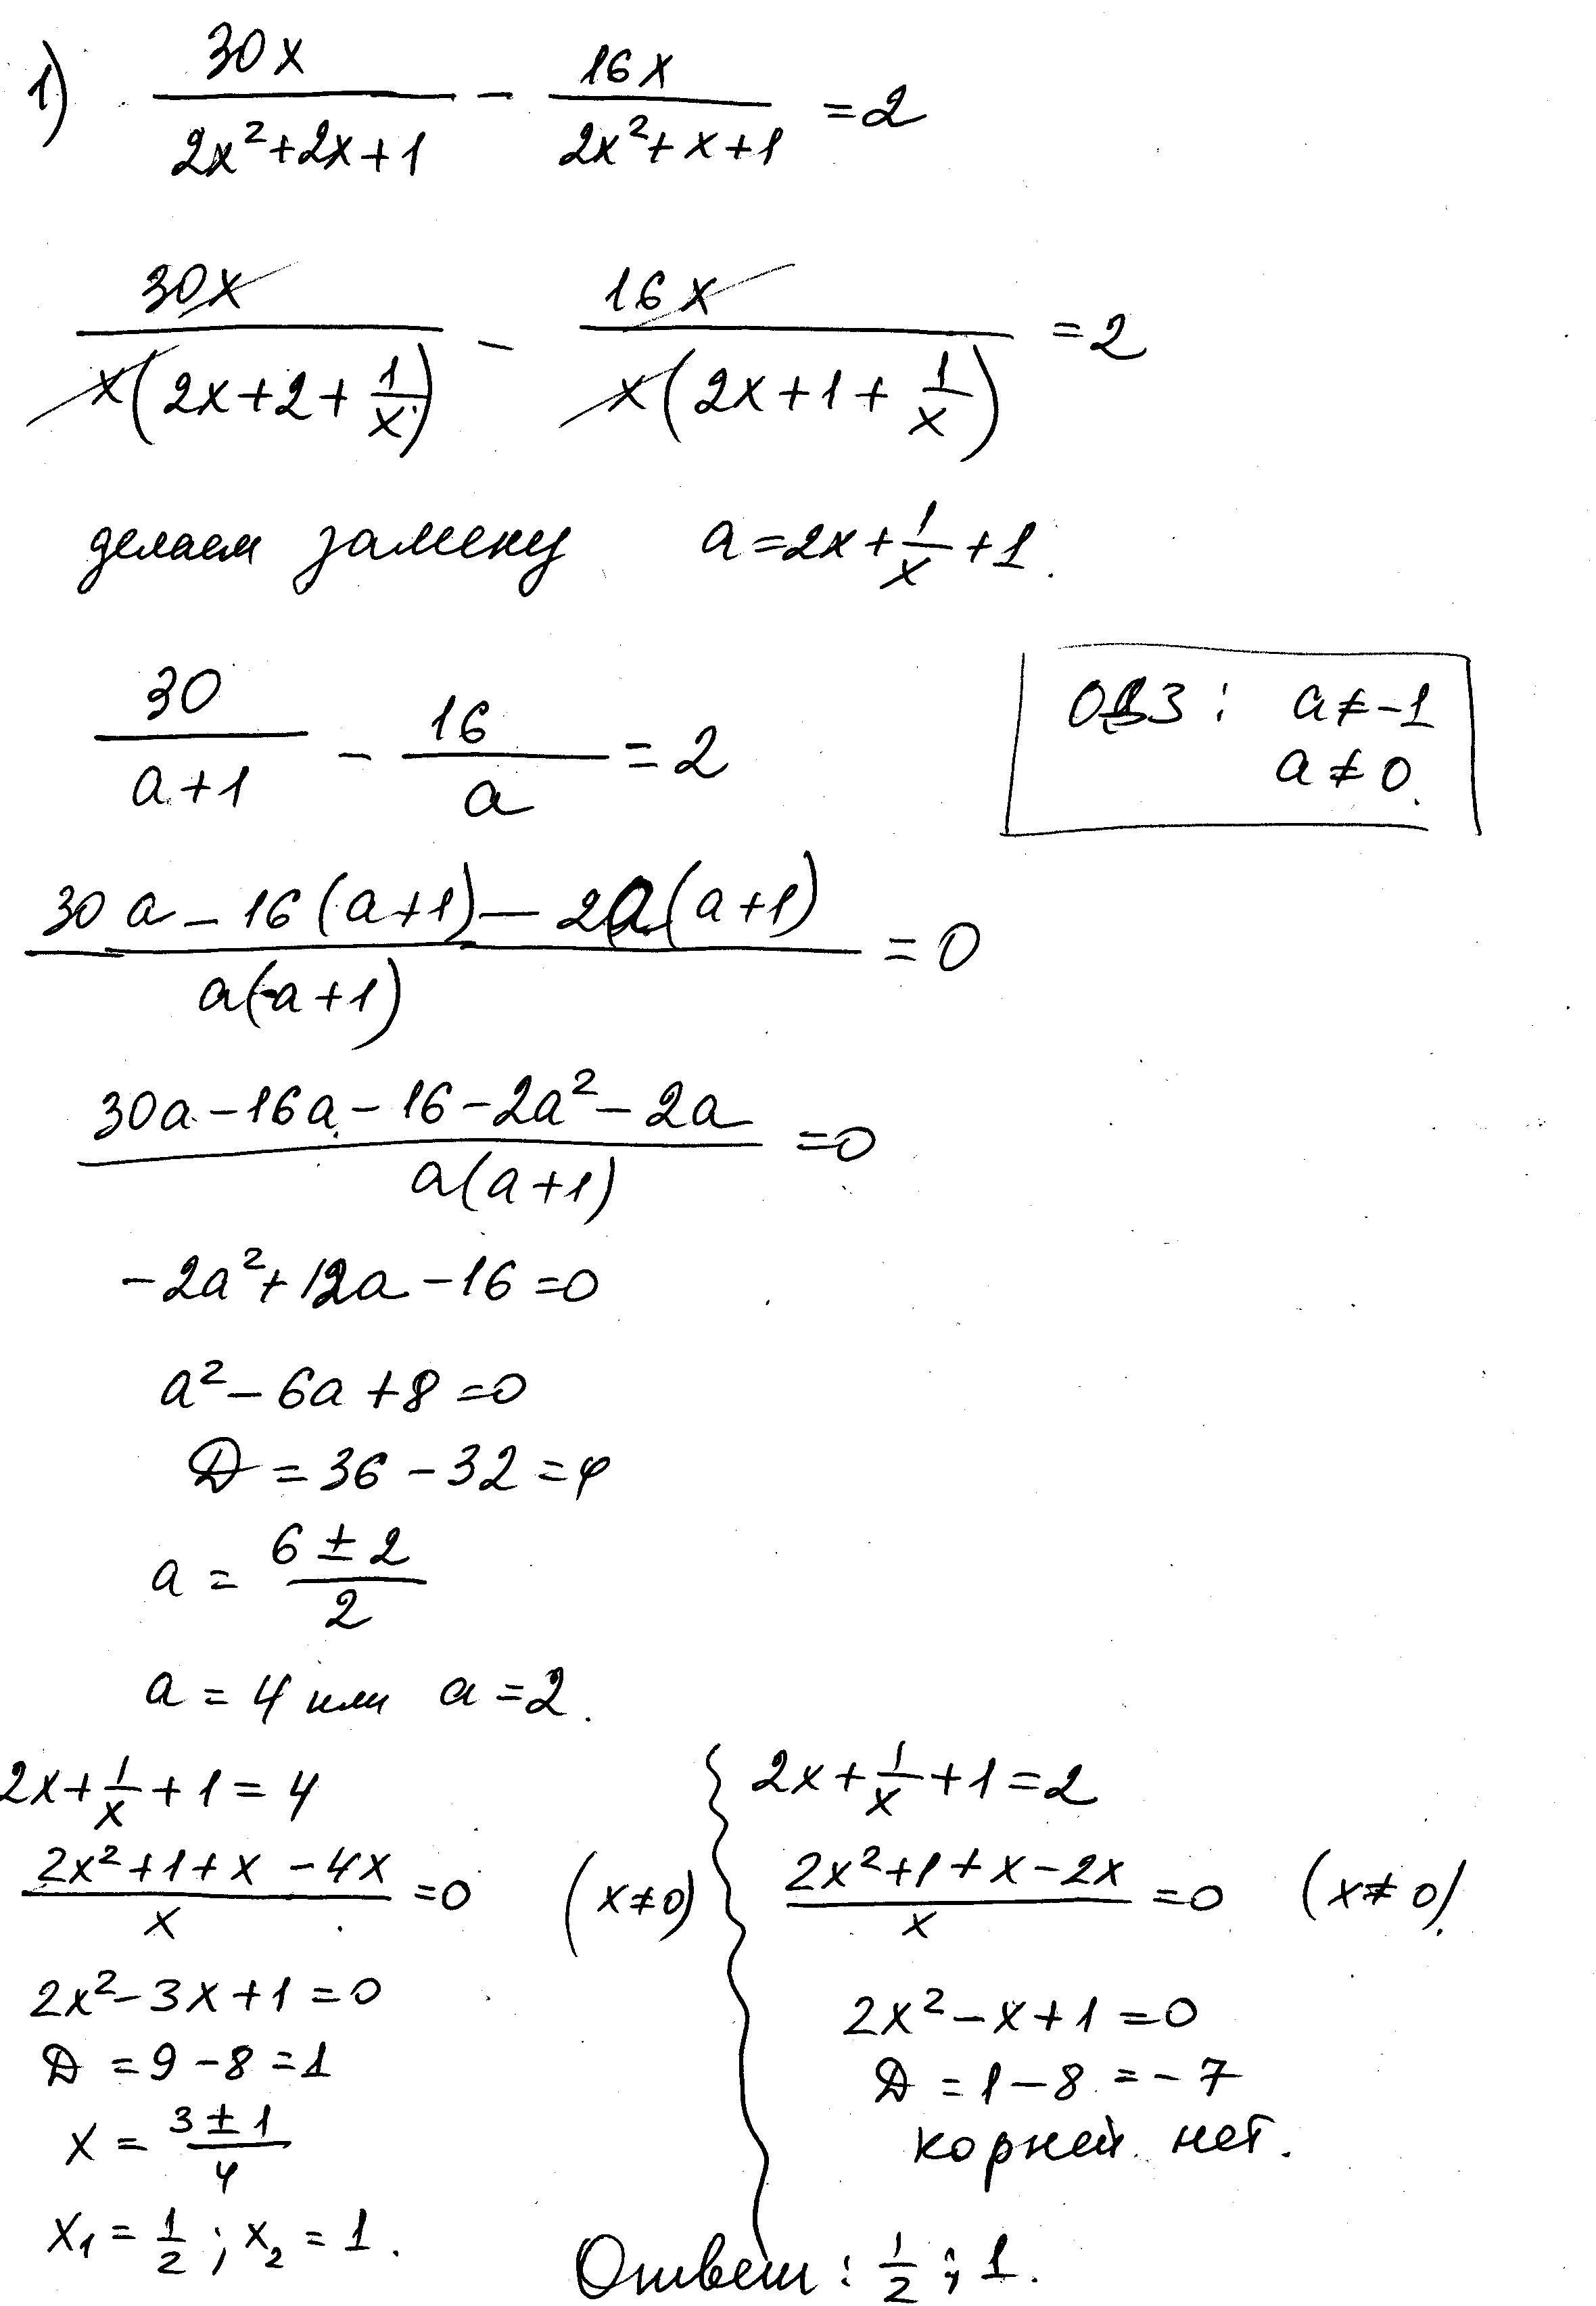 1) 30x/(2x²+2x+1) - 16x/(2x²+x+1) = 2
30x/(x(2x+2+1/x)) - 16x/(x(2x+1+1/x)) = 2
делаем замену a=2x+1/x+1.
30/(a+1) - 16/a = 2
ОДЗ: a≠-1
a≠0.
(30a-16(a+1)-2a(a+1))/(a(a+1)) = 0
(30a-16a-16-2a²-2a)/(a(a+1)) = 0
-2a²+12a-16=0
a²-6a+8=0
D=36-32=4
a = (6±2)/2
a=4 или a=2.
2x+1/x+1=4
(2x²+1+x-4x)/x = 0 (x≠0)
2x²-3x+1=0
D=9-8=1
x = (3±1)/4
x₁=1/2; x₂=1.
2x+1/x+1=2
(2x²+1+x-2x)/x = 0 (x≠0).
2x²-x+1=0
D=1-8=-7
корней нет.
Ответ: 1/2; 1.